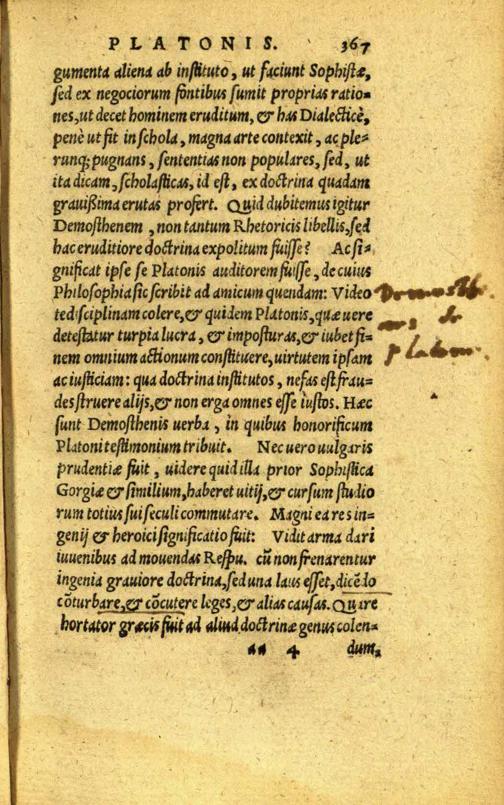 PLATONIS. 367
gumenta aliena ab instituto, ut faciunt Sophistæ,
sed ex negociorum fontibus sumit proprias ratio-
nes, ut decet hominem eruditum, & has Dialecticè,
penè ut fit in schola, magna arte contexit, ac ple-
runq; pugnans, sententias non populares, sed, ut
ita dicam, scholasticas, id est, ex doctrina quadam
grauißima erutas profert. Quid dubitemus igitur
Demosthenem, non tantum Rhetoricis libellis, sed
hac eruditiore doctrina expolitum fuisse? Ac si-
gnificat ipse se Platonis auditorem fuisse, de cuius
Philosophia sic scribit ad amicum quendam: Video
te disciplinam colere, & quidem Platonis, quæ uere
detestatur turpia lucra, & imposturas, & iubet fi-
nem omnium actionum constituere, uirtutem ipsam
ac iusticiam: qua doctrina institutos, nefas est frau-
des struere alijs, & non erga omnes esse iustos. Hæc
sunt Demosthenis uerba, in quibus honorificum
Platoni testimonium tribuit. Nec uero uulgaris
prudentiæ fuit, uidere quid illa prior Sophistica
Gorgiæ & similium, haberet uitij, & cursum studio
rum totius sui seculi commutare. Magni ea res in-
genij & heroici significatio fuit: Vidit arma dari
iuuenibus ad mouendas Respu. cũ non frenarentur
ingenia grauiore doctrina, sed una laus esset, dicẽdo
cõturbare, & cõcutere leges, & alias causas. Quare
hortator græcis fuit ad aliud doctrinæ genus colen-
aa 4 dum,
Demosthe
nes de
Platone.